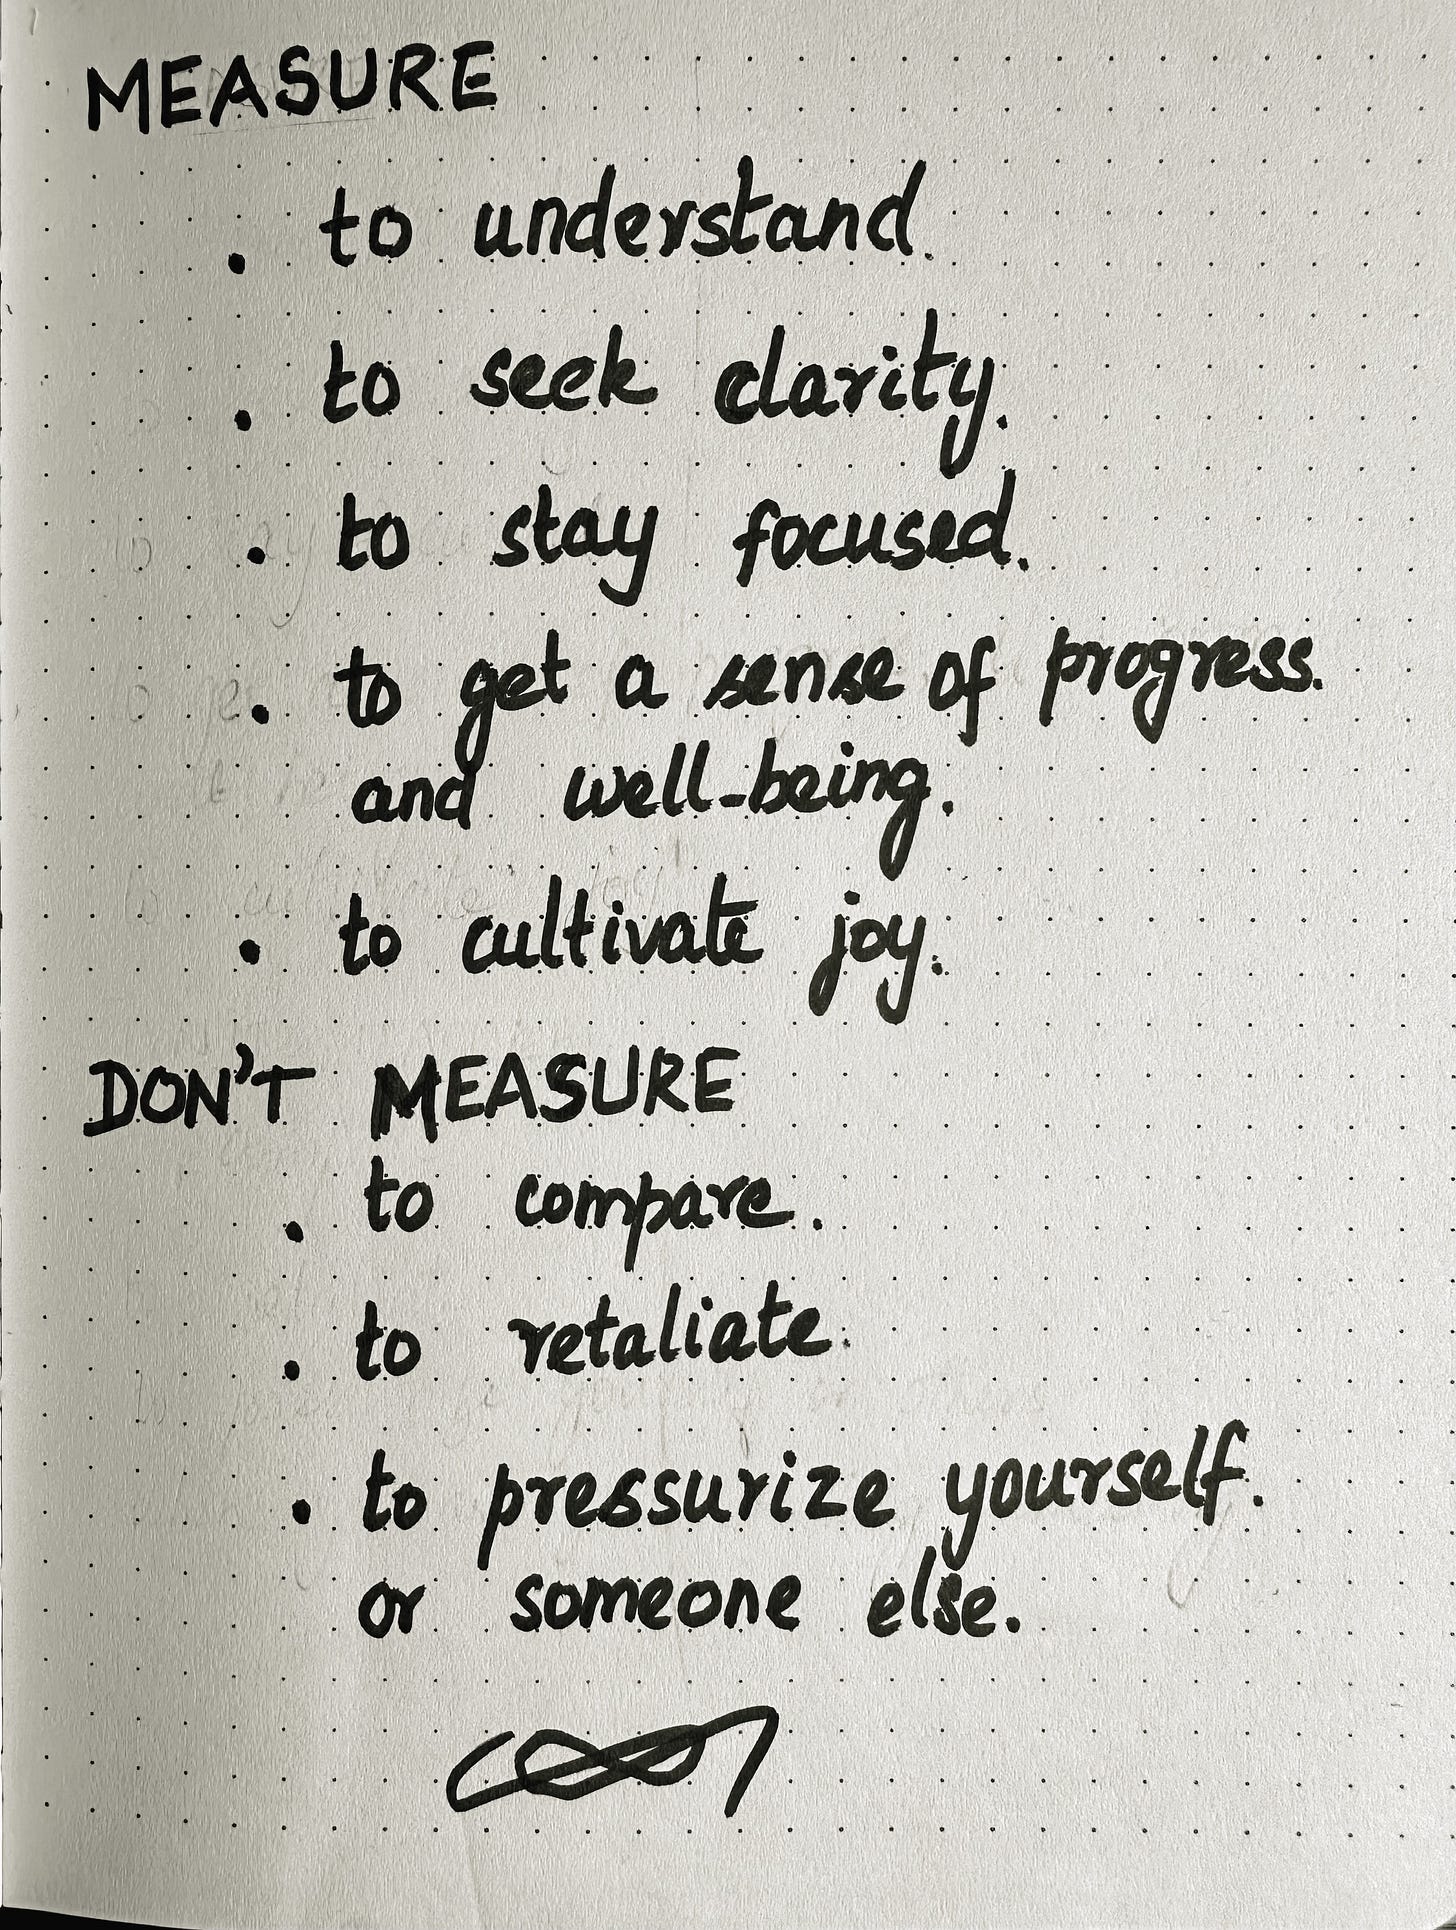 MEASURE
. to understand.
. to seek clarity.
. to stay focused.
. to get a sense of progress.
and well-being.
. to cultivate joy.
DON'T MEASURE
. to compare.
. to retaliate.
. to pressurize yourself.
or someone else.